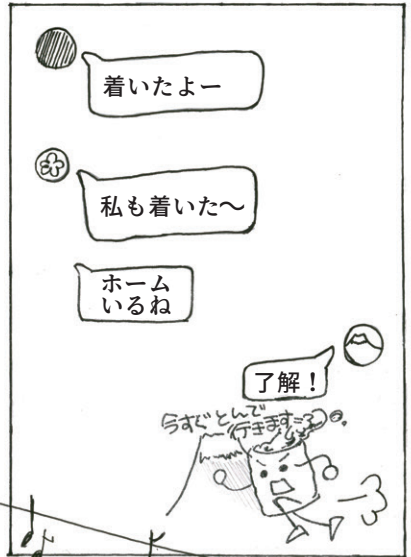 着いたよー
私も着いた〜
ホーム
いるね
了解！
今すぐとんで
行きます=3